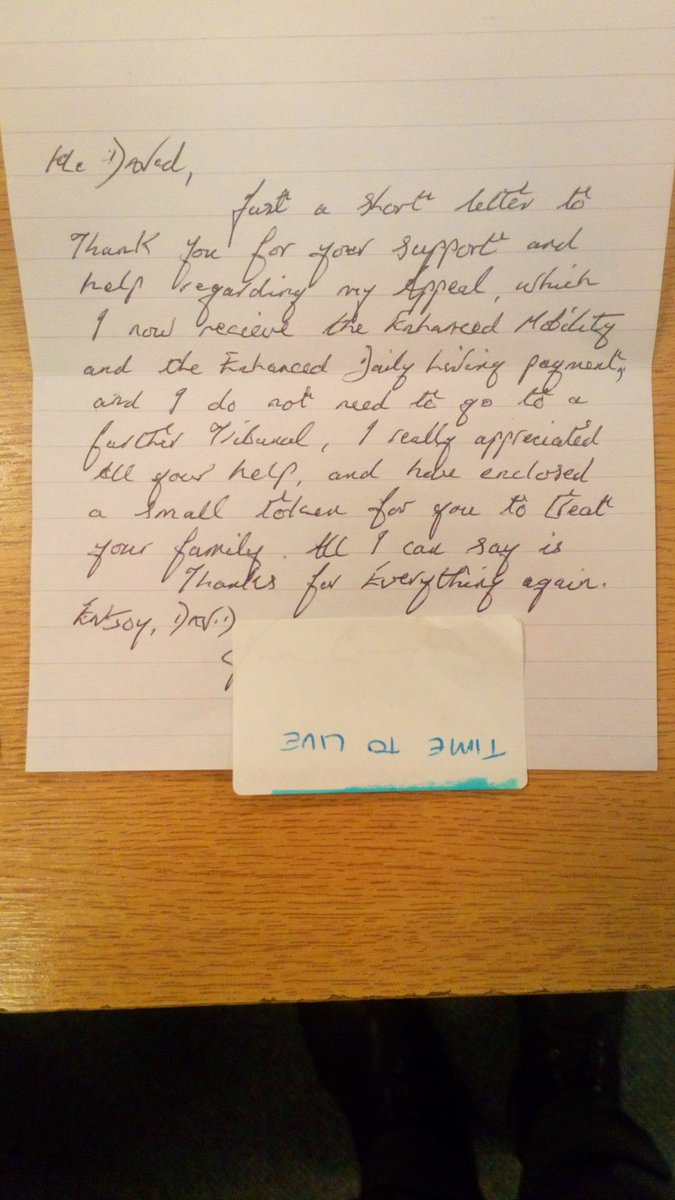 David,
Just a short letter to
Thank you for your support and
help regarding my Appeal, which
I now recieve the Enhanced Mobility
and the Enhanced Daily Living payment,
and I do not need to go to a
further Tribunal, I really appreciated
All your help, and have enclosed
a small token for you to treat
your family. All I can say is
Thanks for Everything again.
Enjoy, David
TIME TO LIVE